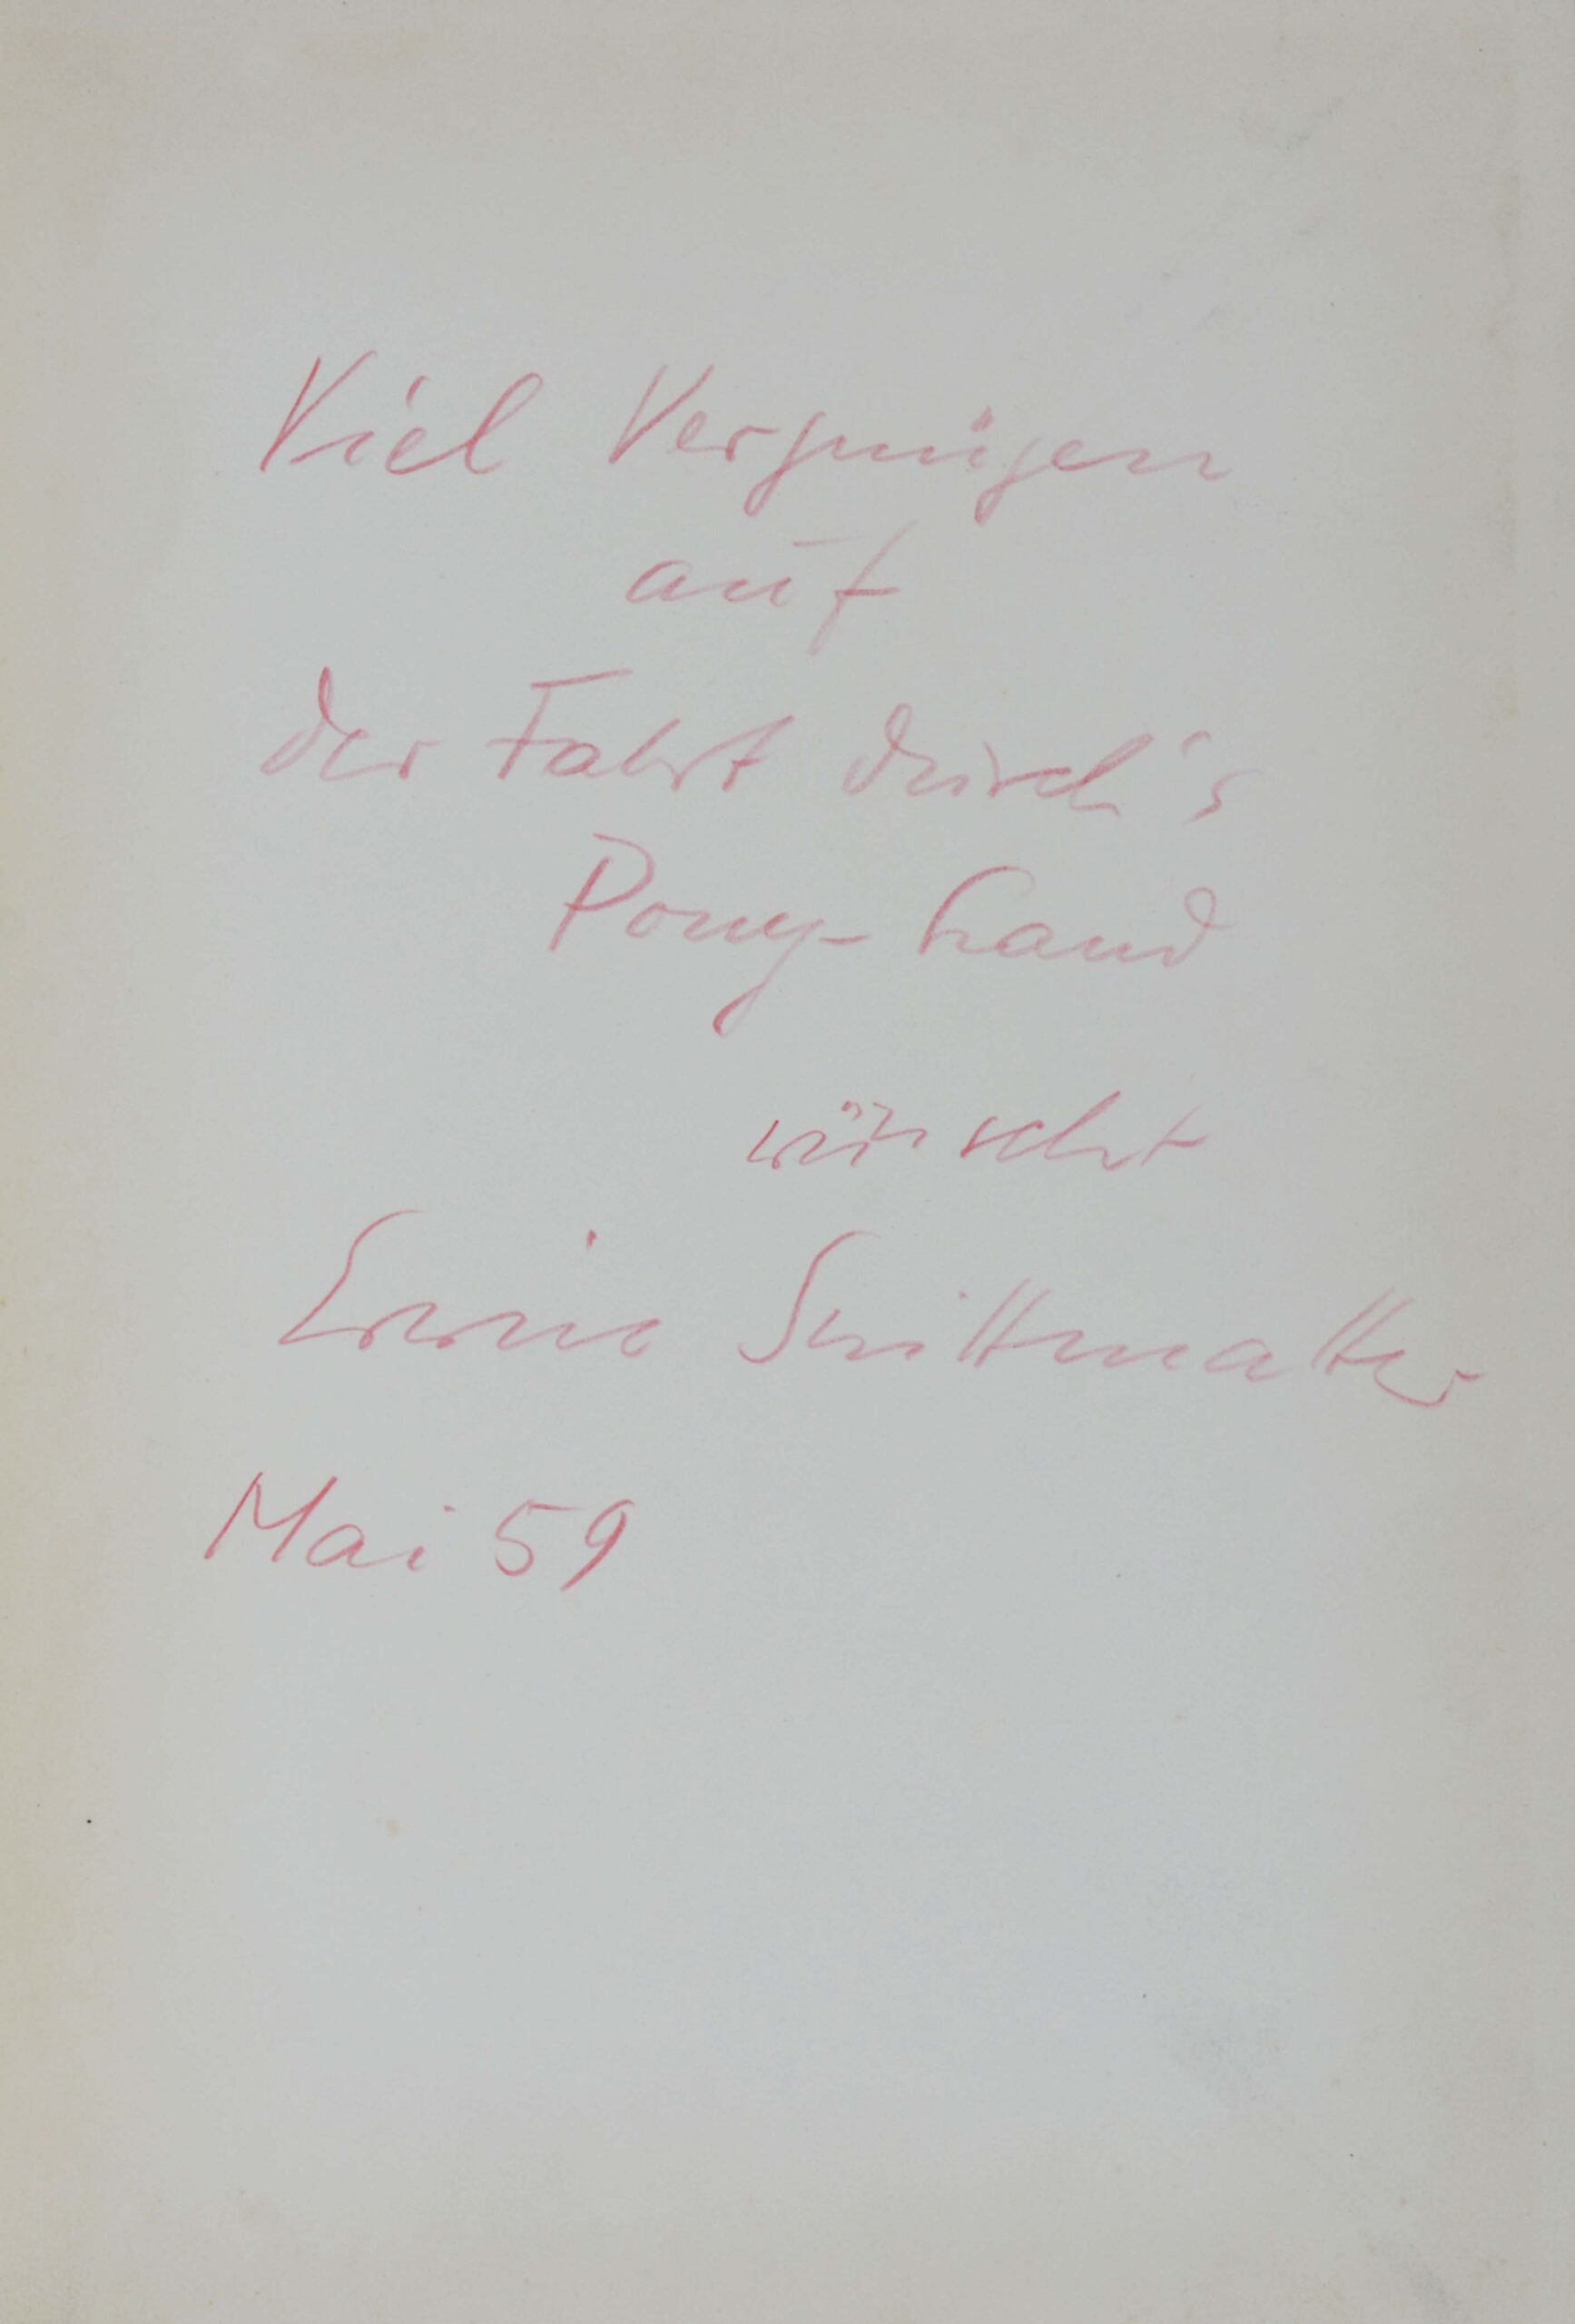 Viel Vergnügen
auf
der Fahrt durch's
Pony-Land
wünscht
Erwin Strittmatter
Mai 59